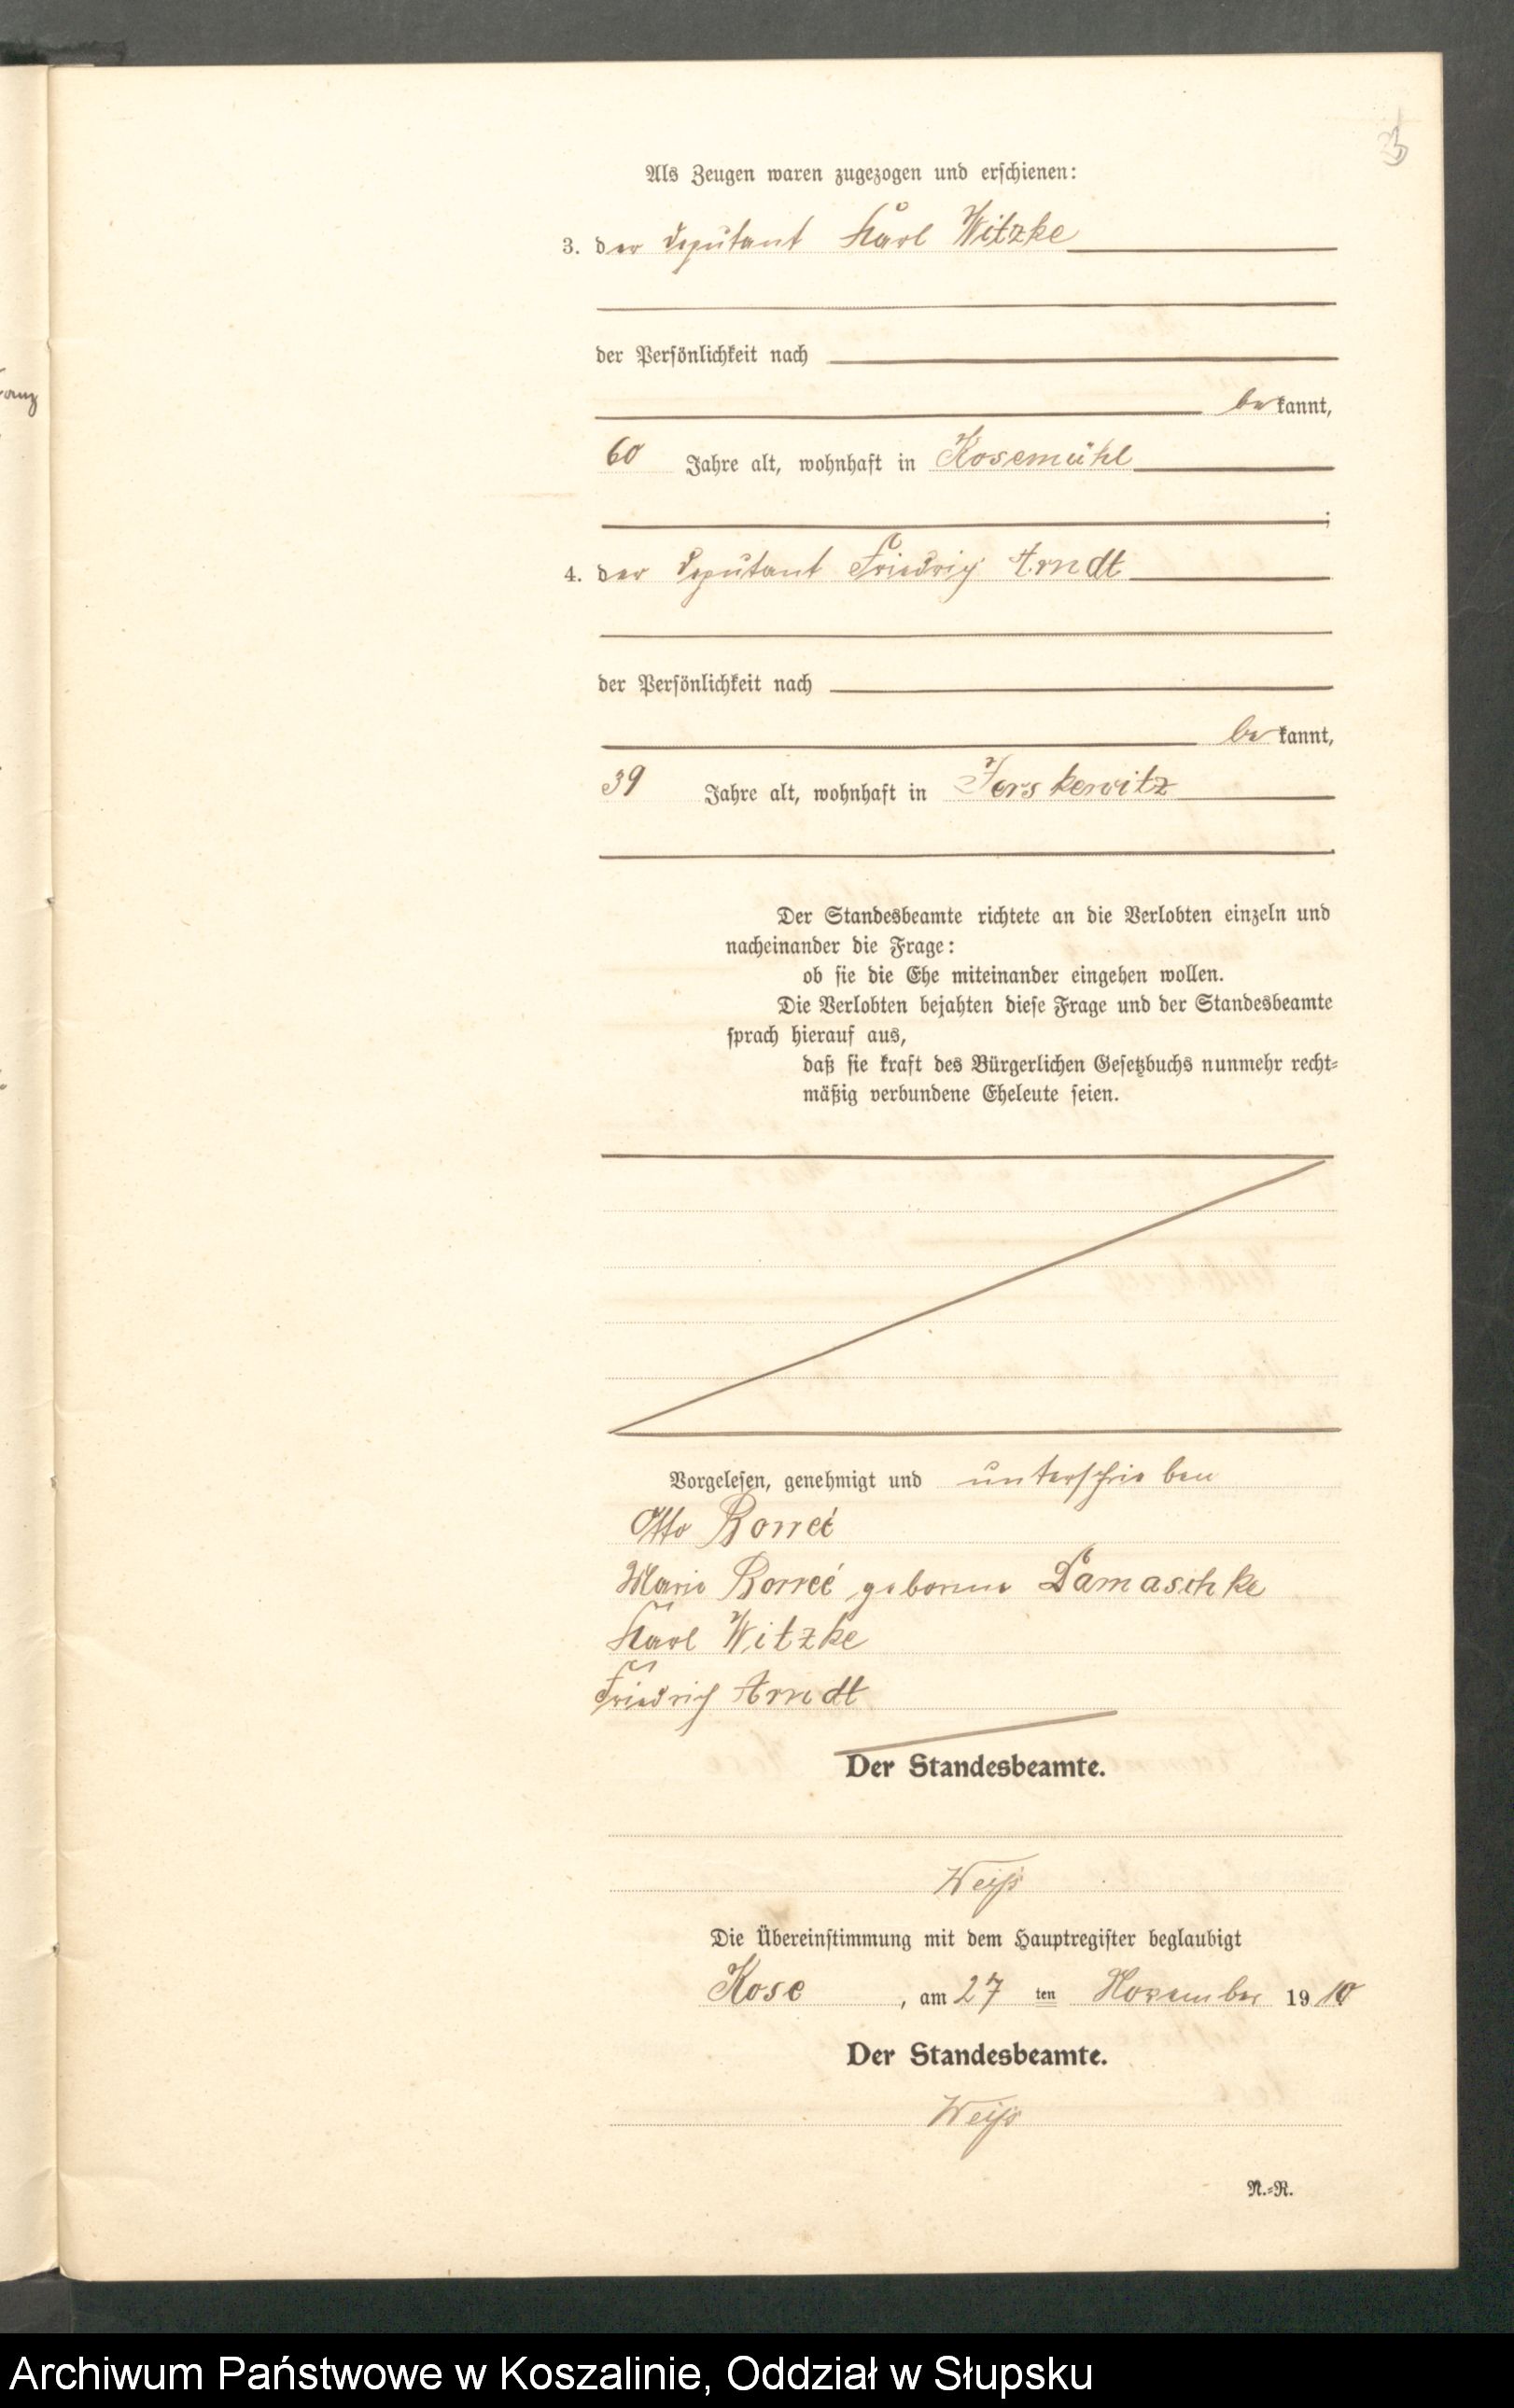 Als Zeugen waren zugezogen und erschienen:
3. der Deputant Karl Witzke
der Persönlichkeit nach
bekannt,
60 Jahre alt, wohnhaft in Kosemühl
;
4. der Deputant Friedrich Arndt
der Persönlichkeit nach
bekannt,
39 Jahre alt, wohnhaft in Jerskewitz
.
Der Standesbeamte richtete an die Verlobten einzeln und
nacheinander die Frage:
ob sie die Ehe miteinander eingehen wollen.
Die Verlobten bejahten diese Frage und der Standesbeamte
sprach hierauf aus,
daß sie kraft des Bürgerlichen Gesetzbuchs nunmehr recht-
mäßig verbundene Eheleute seien.
Vorgelesen, genehmigt und unterschrieben
Otto Borreé
Marie Borreé geborene Damaschke
Karl Witzke
Friedrich Arndt
Der Standesbeamte.
Weiß
Die Übereinstimmung mit dem Hauptregister beglaubigt
Kose, am 27 ten November 1910
Der Standesbeamte.
Weiß
N.-R.
Archiwum Państwowe w Koszalinie, Oddział w Słupsku